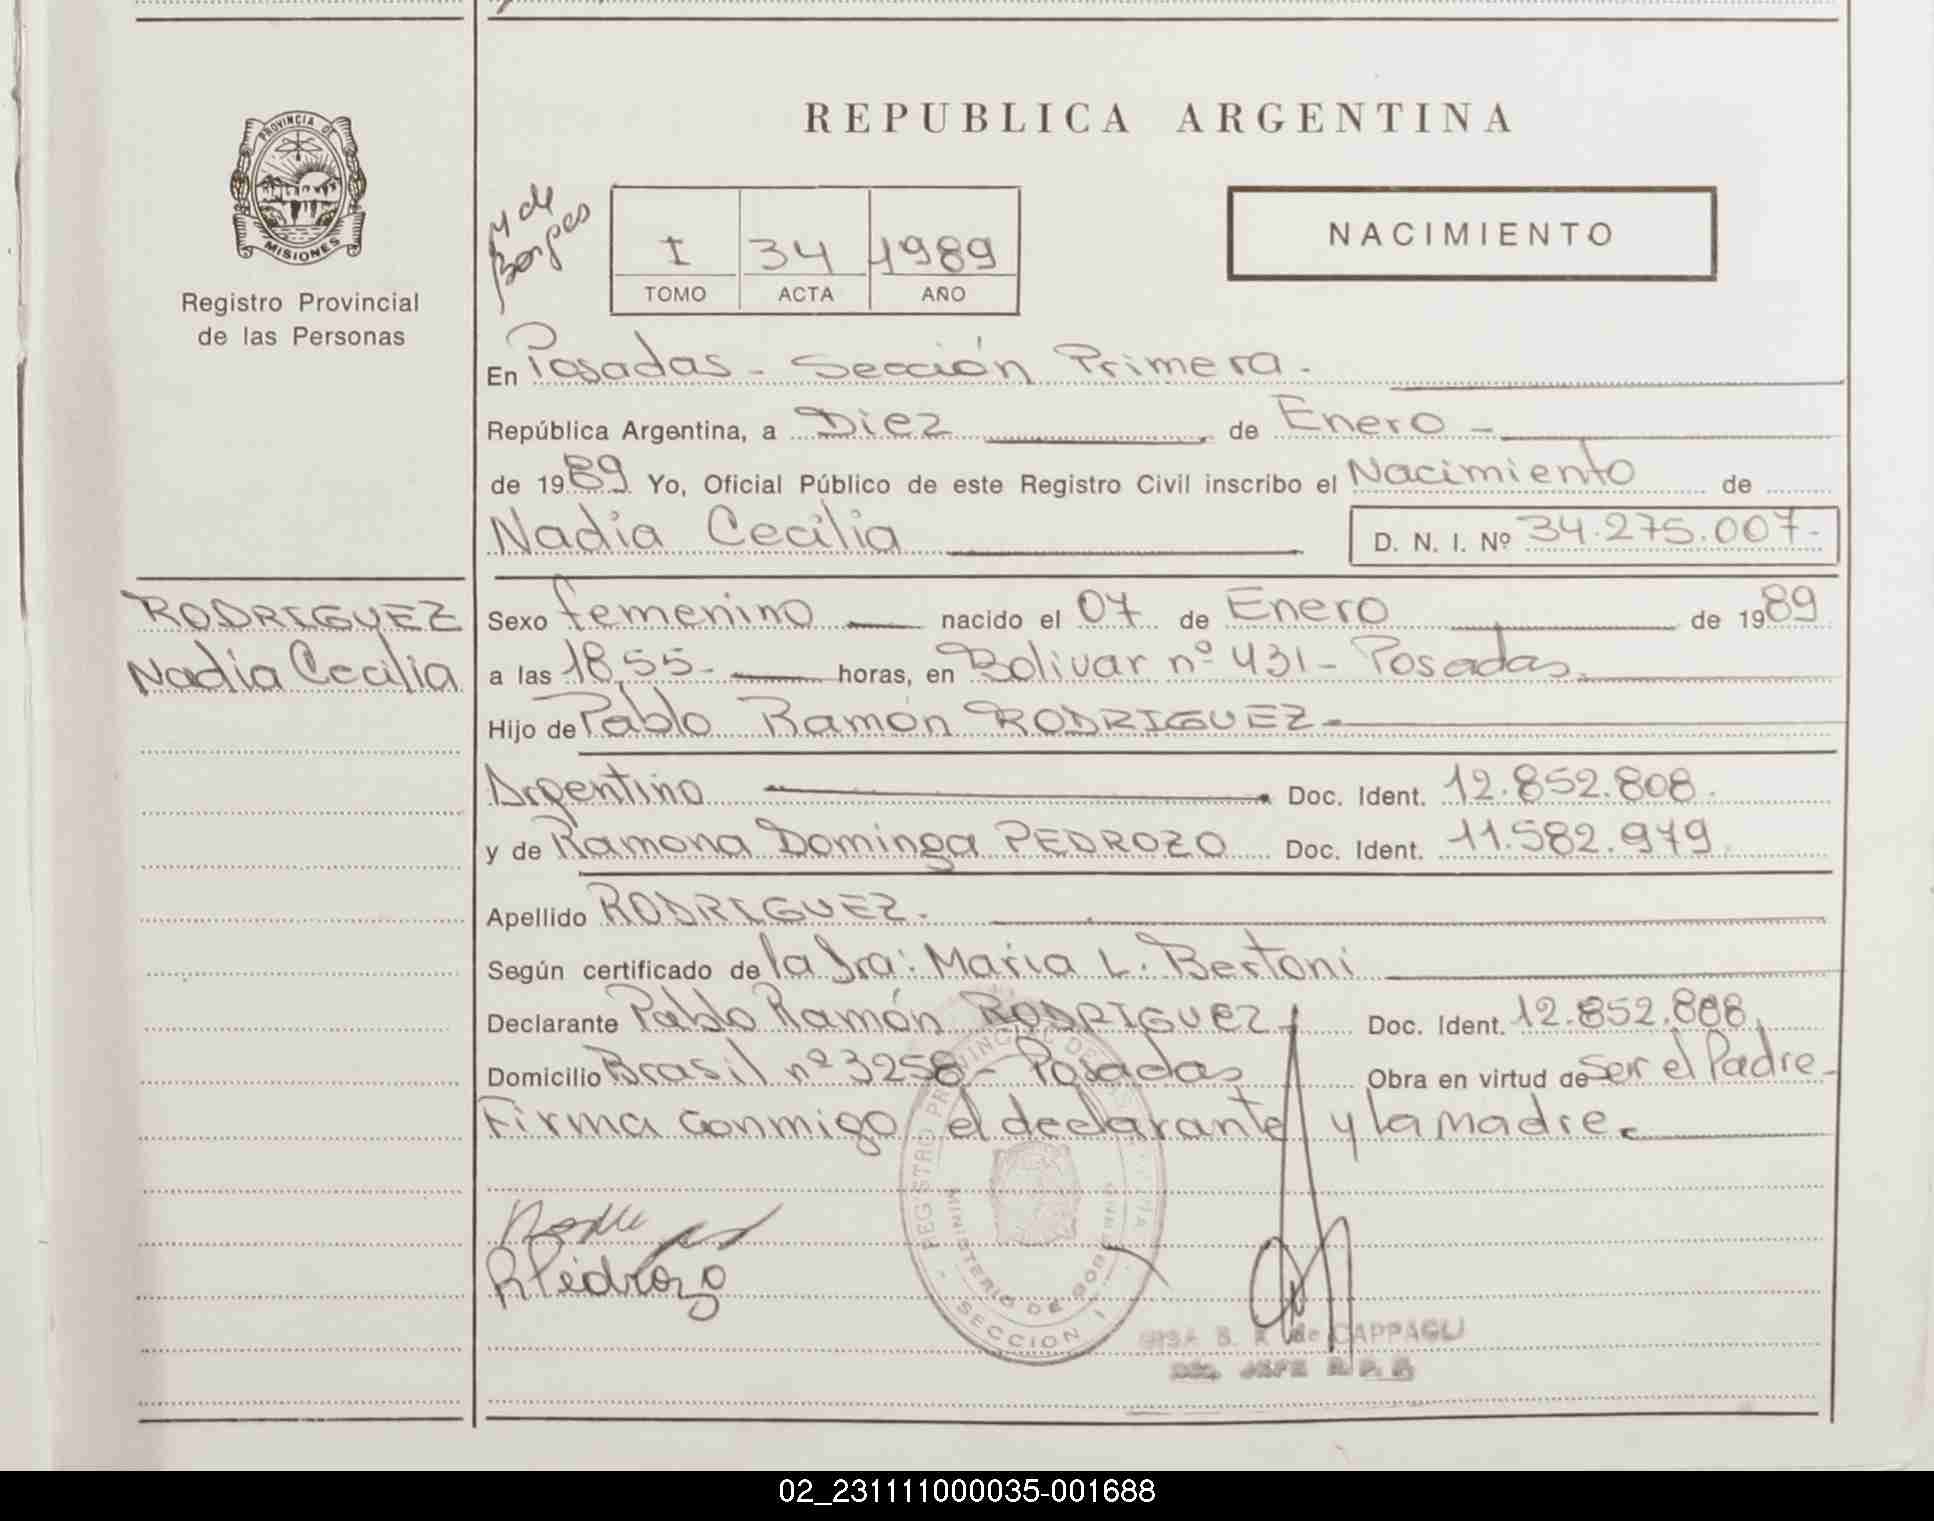 PROVINCIA DE
MISIONES
Registro Provincial
de las Personas
REPUBLICA ARGENTINA
NACIMIENTO
y de
Borges
I 34 1989
TOMO ACTA AÑO
En Posadas - Sección Primera.
República Argentina, a Diez de Enero -
de 1989 Yo, Oficial Público de este Registro Civil inscribo el Nacimiento de
Nadia Cecilia D. N. I. Nº 34.275.007.-
RODRIGUEZ
Nadia Cecilia
Sexo femenino nacido el 07 de Enero de 1989
a las 18,55- horas, en Bolivar nº 431 - Posadas.
Hijo de Pablo Ramón RODRIGUEZ -
Argentino Doc. Ident. 12.852.808.
y de Ramona Dominga PEDROZO Doc. Ident. 11.582.979.
Apellido RODRIGUEZ.
Según certificado de la Dra: Maria L. Bertoni
Declarante Pablo Ramón RODRIGUEZ Doc. Ident. 12.852.808,
Domicilio Brasil nº 3258 - Posadas Obra en virtud de ser el Padre -
Firma conmigo el declarante y la madre.
RPedrozo
REGISTRO PROVINCIAL DE LAS
MINISTERIO DE GOBIERNO
SECCION I
de CAPPAGLI
JEFE
02_231111000035-001688